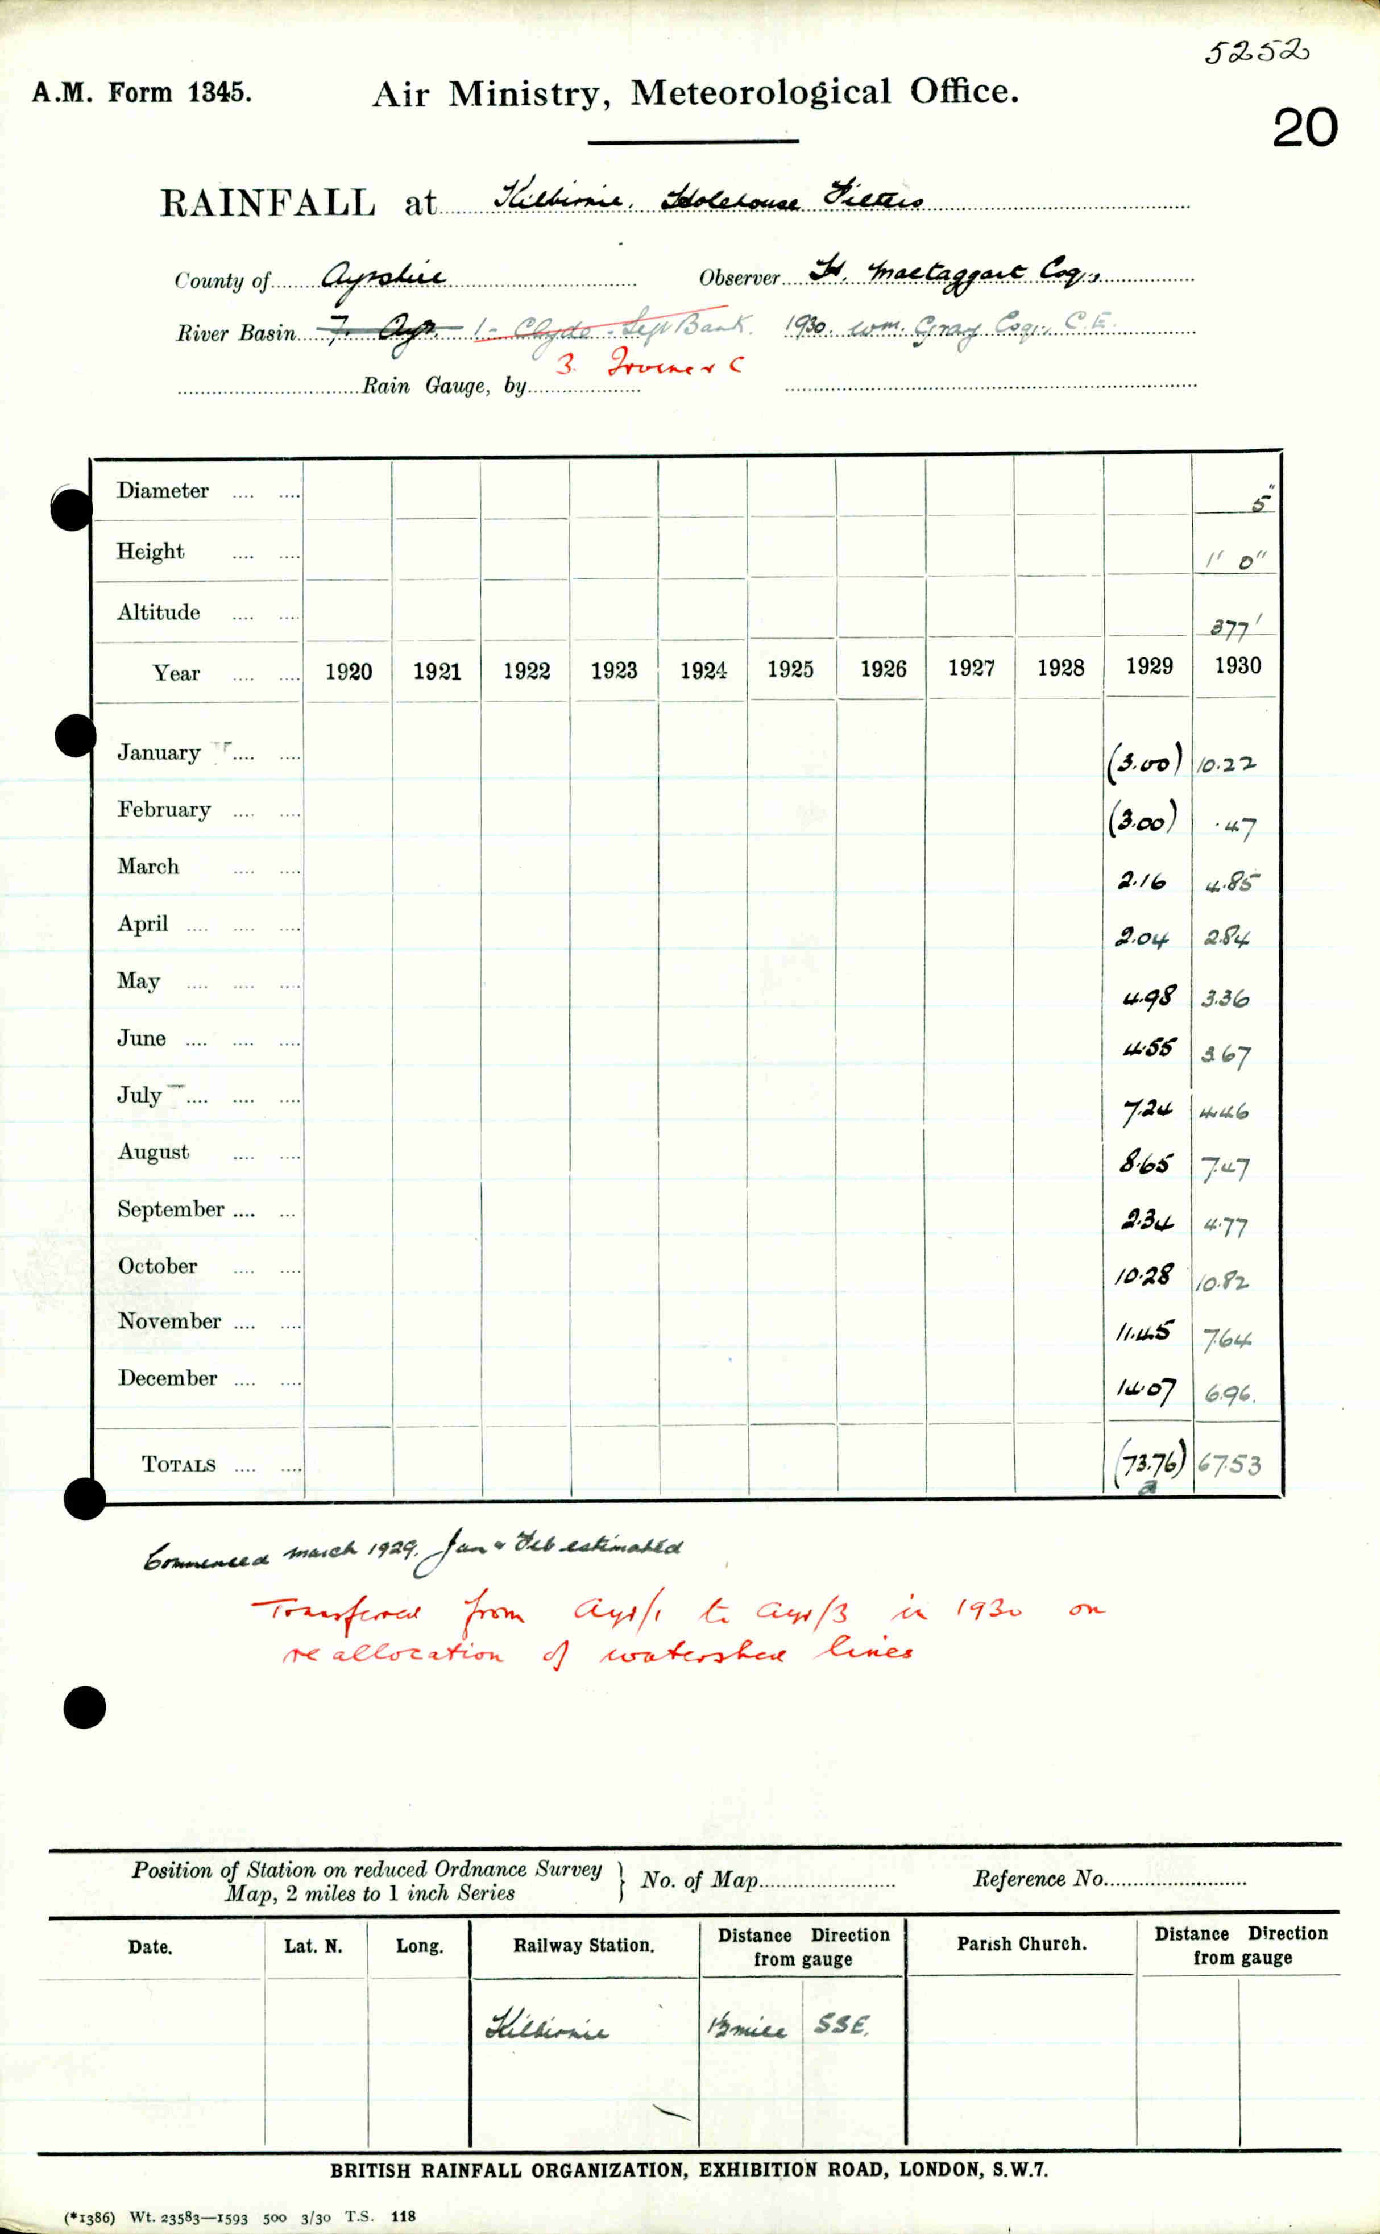 5252
A.M. Form 1345. Air Ministry, Meteorological Office.
20
RAINFALL at Kilbirnie. Holehouse Filters
County of Ayrshire Observer H. Mactaggart Esq.,
River Basin 7. Ayr 1 - Clyde - Left Bank. 1930. Wm. Gray Esq., C.E.
3. Irvine & C
Rain Gauge, by
Diameter 5"
Height 1' 0"
Altitude 377'
Year 1920 1921 1922 1923 1924 1925 1926 1927 1928 1929 1930
January (3.00) 10.22
February (3.00) .47
March 2.16 4.85
April 2.04 2.84
May 4.98 3.36
June 4.55 3.67
July 7.24 4.46
August 8.65 7.47
September 2.34 4.77
October 10.28 10.82
November 11.45 7.64
December 14.07 6.96.
TOTALS (73.76) 67.53
a
Commenced March 1929. Jan & Feb estimated
Transferred from Ayr/1 to Ayr/3 in 1930 on
reallocation of watershed lines
Position of Station on reduced Ordnance Survey Map, 2 miles to 1 inch Series } No. of Map Reference No.
Date. Lat. N. Long. Railway Station. Distance Direction from gauge Parish Church. Distance Direction from gauge
Kilbirnie 1½ mile SSE.
BRITISH RAINFALL ORGANIZATION, EXHIBITION ROAD, LONDON, S.W.7.
(*1386) Wt. 23583—1593 500 3/30 T.S. 118